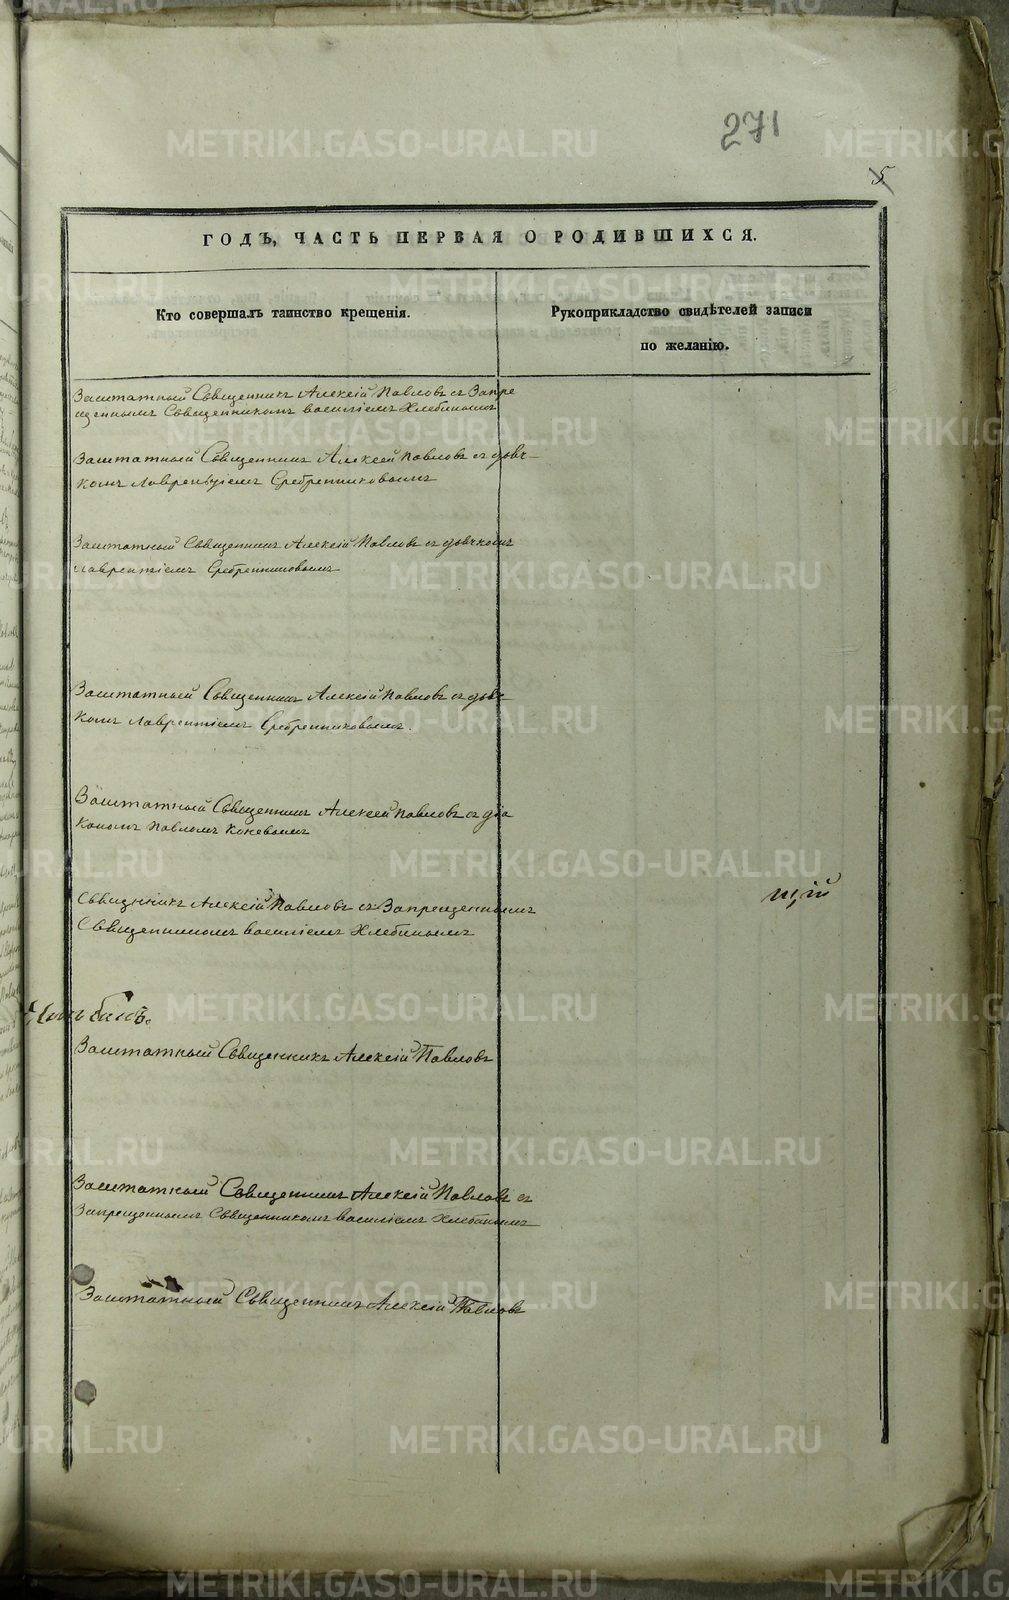 271
5
ГОДЪ, ЧАСТЬ ПЕРВАЯ О РОДИВШИХСЯ.
Кто совершалъ таинство крещенія.
Рукоприкладство свидѣтелей записи
по желанію.
Заштатный Священникъ Алексій Павловъ съ Запре
щеннымъ Священникомъ василіемъ Хлебинымъ
Заштатный Священникъ Алексей Павловъ съ дьяч-
комъ Лаврентіемъ Сребренниковымъ
Заштатный Священникъ Алексій Павловъ съ дьячкомъ
Лаврентіемъ Сребренниковымъ
Заштатный Священникъ Алексій Павловъ съ дьяч-
комъ Лаврентіемъ Сребренниковымъ.
Заштатный Священникъ Алексей Павловъ съ діа
кономъ Павломъ Коневымъ
Священникъ Алексій Павловъ съ Запрещеннымъ
Священникомъ василіемъ Хлебинымъ
щій
Заштатный Священникъ Алексій Павловъ
Заштатный Священникъ Алексій Павловъ съ
Запрещеннымъ Священникомъ василіемъ Хлебинымъ
Заштатный Священникъ Алексій Павловъ
METRIKI.GASO-URAL.RU